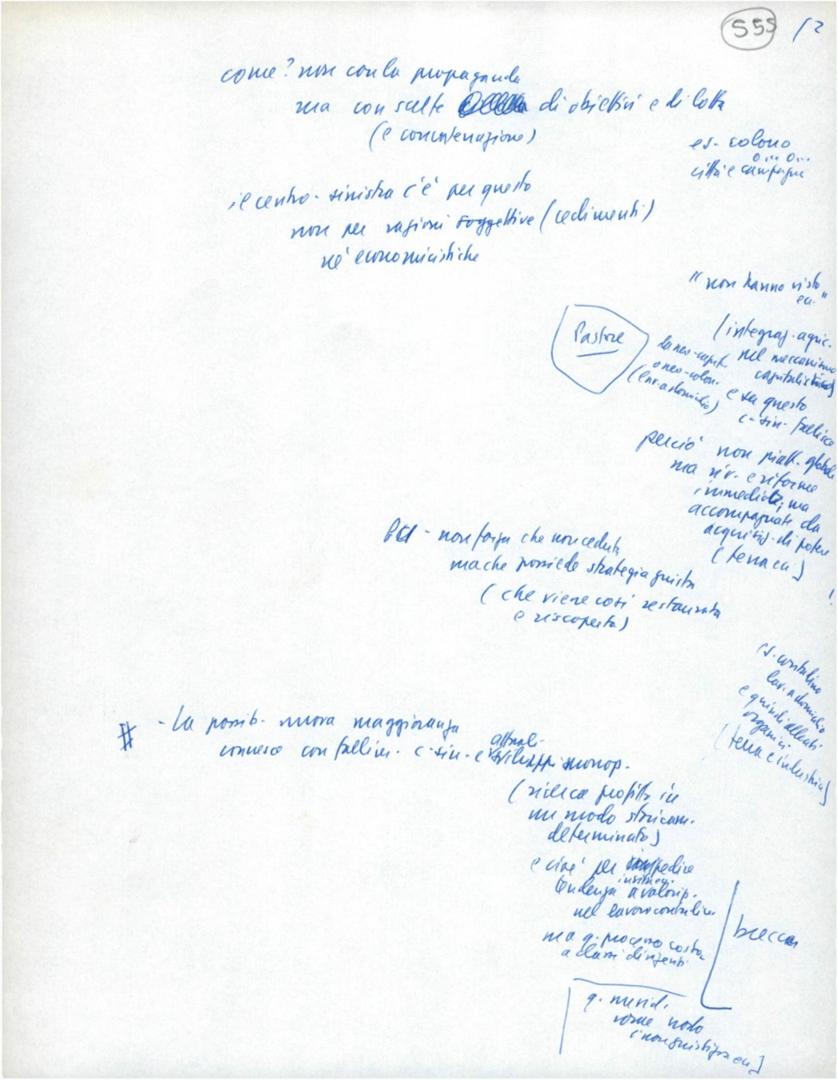 S55 /2
come? non con la propaganda
ma con scelte di obiettivi e di lotta
(e concatenazione)
es. colono
città e campagna
il centro-sinistra c'è per questo
non per ragioni soggettive (cedimenti)
né economicistiche
"non hanno visto
ecc."
Pastore
(integraz. agric.
nel meccanismo
capitalistico)
e su questo
c-sin. fallisce
perciò non piatt. globale
ma riv. e riforme
immediate, ma
accompagnate da
acquisiz. di potere
(terra ecc)
PCI - non forza che non cede
ma che possiede strategia giusta
(che viene così restaurata
e riscoperta)
lav. a domicilio
e quindi alleati
organici
(terra e industria)
# - La possib. nuova maggioranza
connessa con fallim. c-sin. e attuali
sviluppi monop.
(ricerca profitto in
un modo storicam.
determinato)
e cioè per impedire
tendenza a valorizz.
nel lavoro contadino
ma q. processo costa
a classi dirigenti
breccia
q. merid.
come nodo